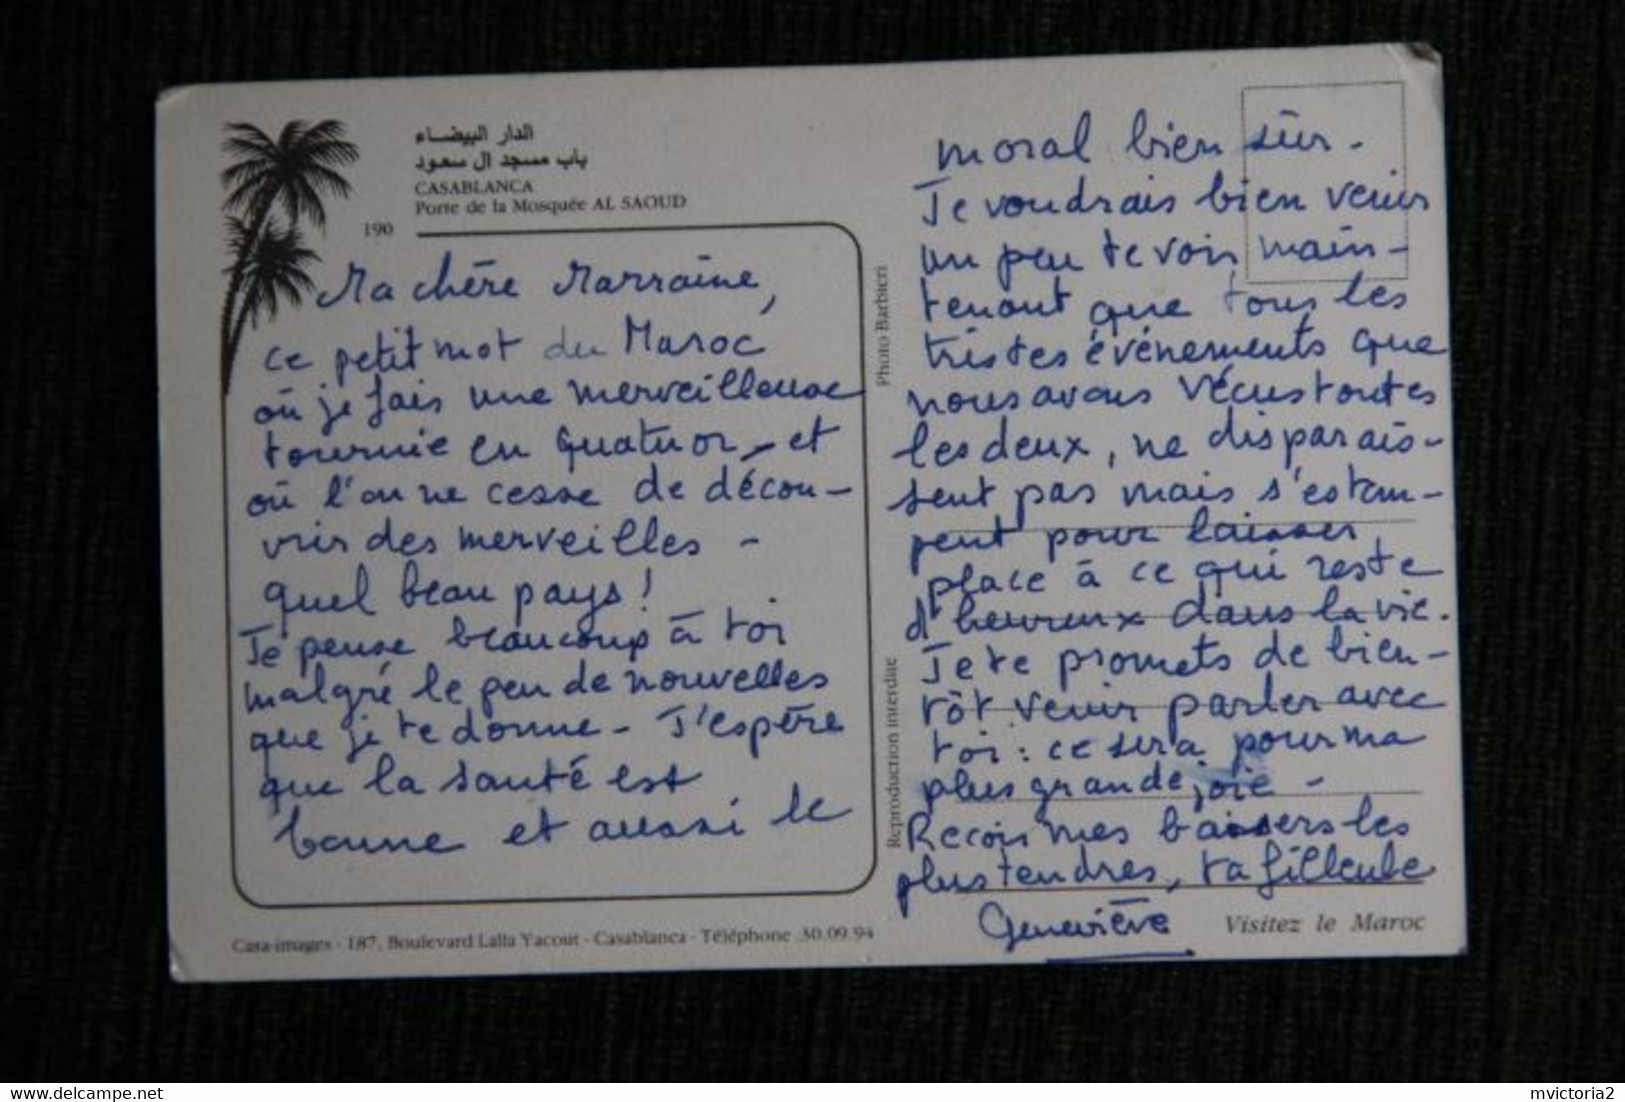 الدار البيضاء
باب مسجد ال سعود
CASABLANCA
Porte de la Mosquée AL SAOUD
190
Ma chère Marraine,
ce petit mot du Maroc
où je fais une merveilleuse
tournée en Quatuor, et
où l'on ne cesse de décou-
vrir des merveilles -
quel beau pays !
Je pense beaucoup à toi
malgré le peu de nouvelles
que je te donne - J'espère
que la santé est
bonne et aussi le
Photo Barbieri
Reproduction interdite
moral bien sûr.
Je voudrais bien venir
un peu te voir, main-
tenant que tous les
tristes événements que
nous avons vécus toutes
les deux, ne disparais-
sent pas mais s'estom-
pent pour laisser
place à ce qui reste
d'heureux dans la vie.
Je te promets de bien-
tôt venir parler avec
toi : ce sera pour ma
plus grande joie -
Reçois mes baisers les
plus tendres, ta filleule
Geneviève
Casa-images - 187, Boulevard Lalla Yacout - Casablanca - Téléphone 30.09.94
Visitez le Maroc
mvictoria2